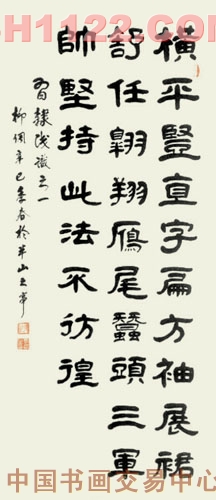 SH1122.COM
橫平豎直字扁方袖展裙
舒任翺翔鴈尾蠶頭三軍
帥堅持此法不彷徨
習隸淺之一
柳倜辛巳季春於半山
中国书画交易中心